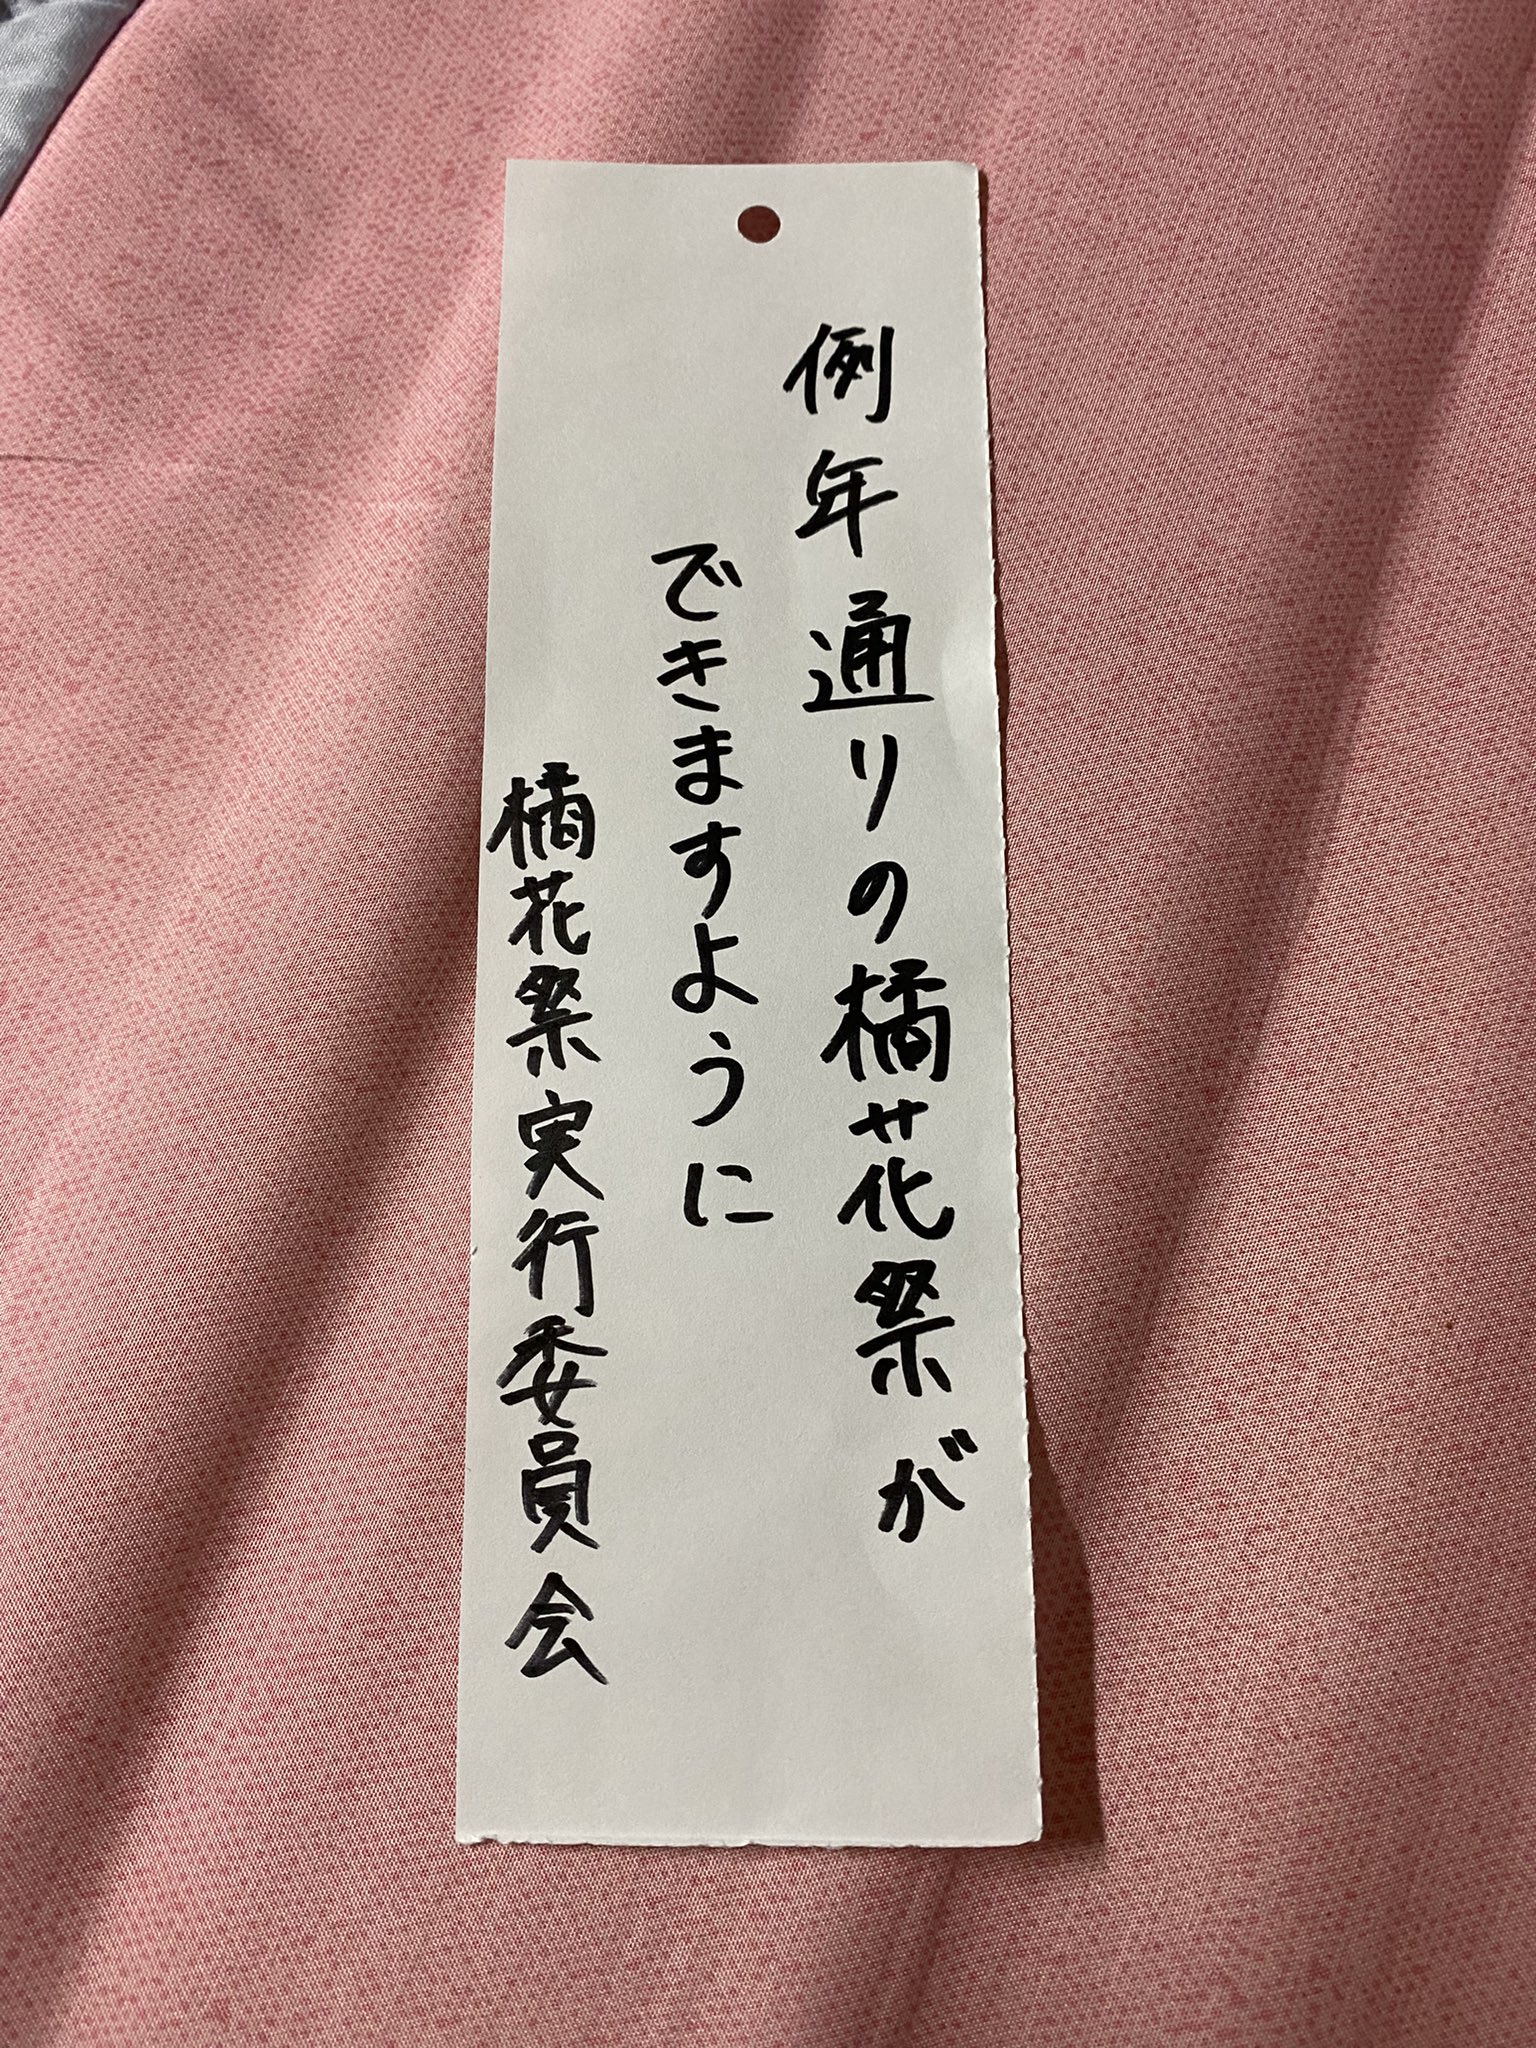 例年通りの橘花祭が
できますように
橘花祭実行委員会